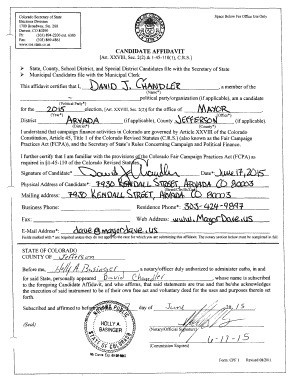 Colorado Secretary of State
Elections Division
1700 Broadway, Ste. 200
Denver, CO 80290
Space Below For Office Use Only
CANDIDATE AFFIDAVIT
[Art. XXVIII, Sec. 2(2) & 1-45-110(1), C.R.S.]
State, County, School District, and Special District Candidates file with the Secretary of State
Municipal Candidates file with the Municipal Clerk
This affidavit certifies that I, DAVID J. CHANDLER, a member of the
(Name)
political party/organization (if applicable), am a candidate
(Political Party)
for the 2015 election, (Art. XXVIII, Sec. 2(7) for the office of MAYOR
(Year) (Office)
District ARVADA (if applicable) County JEFFERSON (if applicable).
(District) (County)
I understand that campaign finance activities in Colorado are governed by Article XXVIII of the Colorado
Constitution, Article 45, Title 1 of the Colorado Revised Statutes (C.R.S.) (also known as the Fair Campaign
Practices Act (FCPA)), and the Secretary of State's Rules Concerning Campaign and Political Finance.
I further certify that I am familiar with the provisions of the Colorado Fair Campaign Practices Act (FCPA) as
required in §1-45-110 of the Colorado Revised Statutes.
Signature of Candidate: David J Chandler Date: JUNE 17, 2015
Physical Address of Candidate: 7930 KENDALL STREET, ARVADA CO 80003
Mailing address: 7930 KENDALL STREET, ARVADA CO 80003
Business Phone: Residence Phone: 303-424-9897
Fax: Web Address: www.MayorDave.us
E-Mail Address: dave@mayordave.us
STATE OF COLORADO
COUNTY OF Jefferson
Before me, Holly A Basinger, a notary/officer duly authorized to administer oaths, in and
for said State, personally appeared David Chandler, whose name is subscribed
to the foregoing Candidate Affidavit, and who affirms, that said statements are true and that he/she acknowledges
the execution of said instrument to be of own free act and voluntary deed for the uses and purposes therein set
forth.
Subscribed and affirmed to before day of June, 20 15
(Seal)
NOTARY PUBLIC
HOLLY A.
BASINGER
STATE OF COLORADO
(Notary/Official Signature)
6-17-15
(Commission Expires)
Form CPF 1 Revised 08/2011